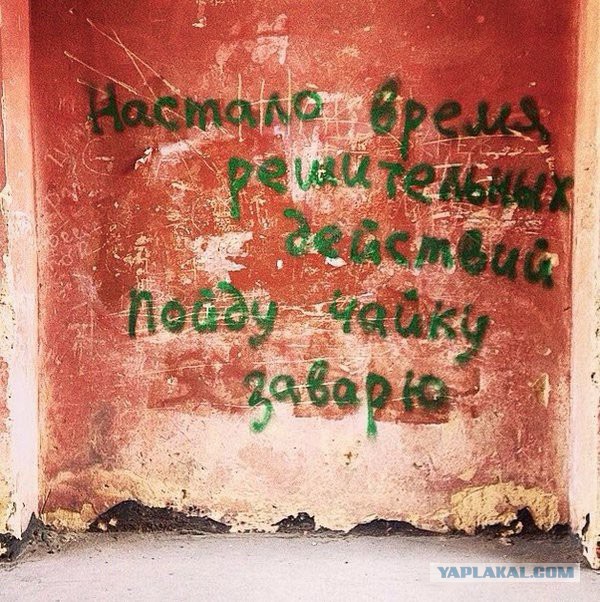 Настало время
решительных
действий
Пойду чайку
заварю
YAPLAKAL.COM